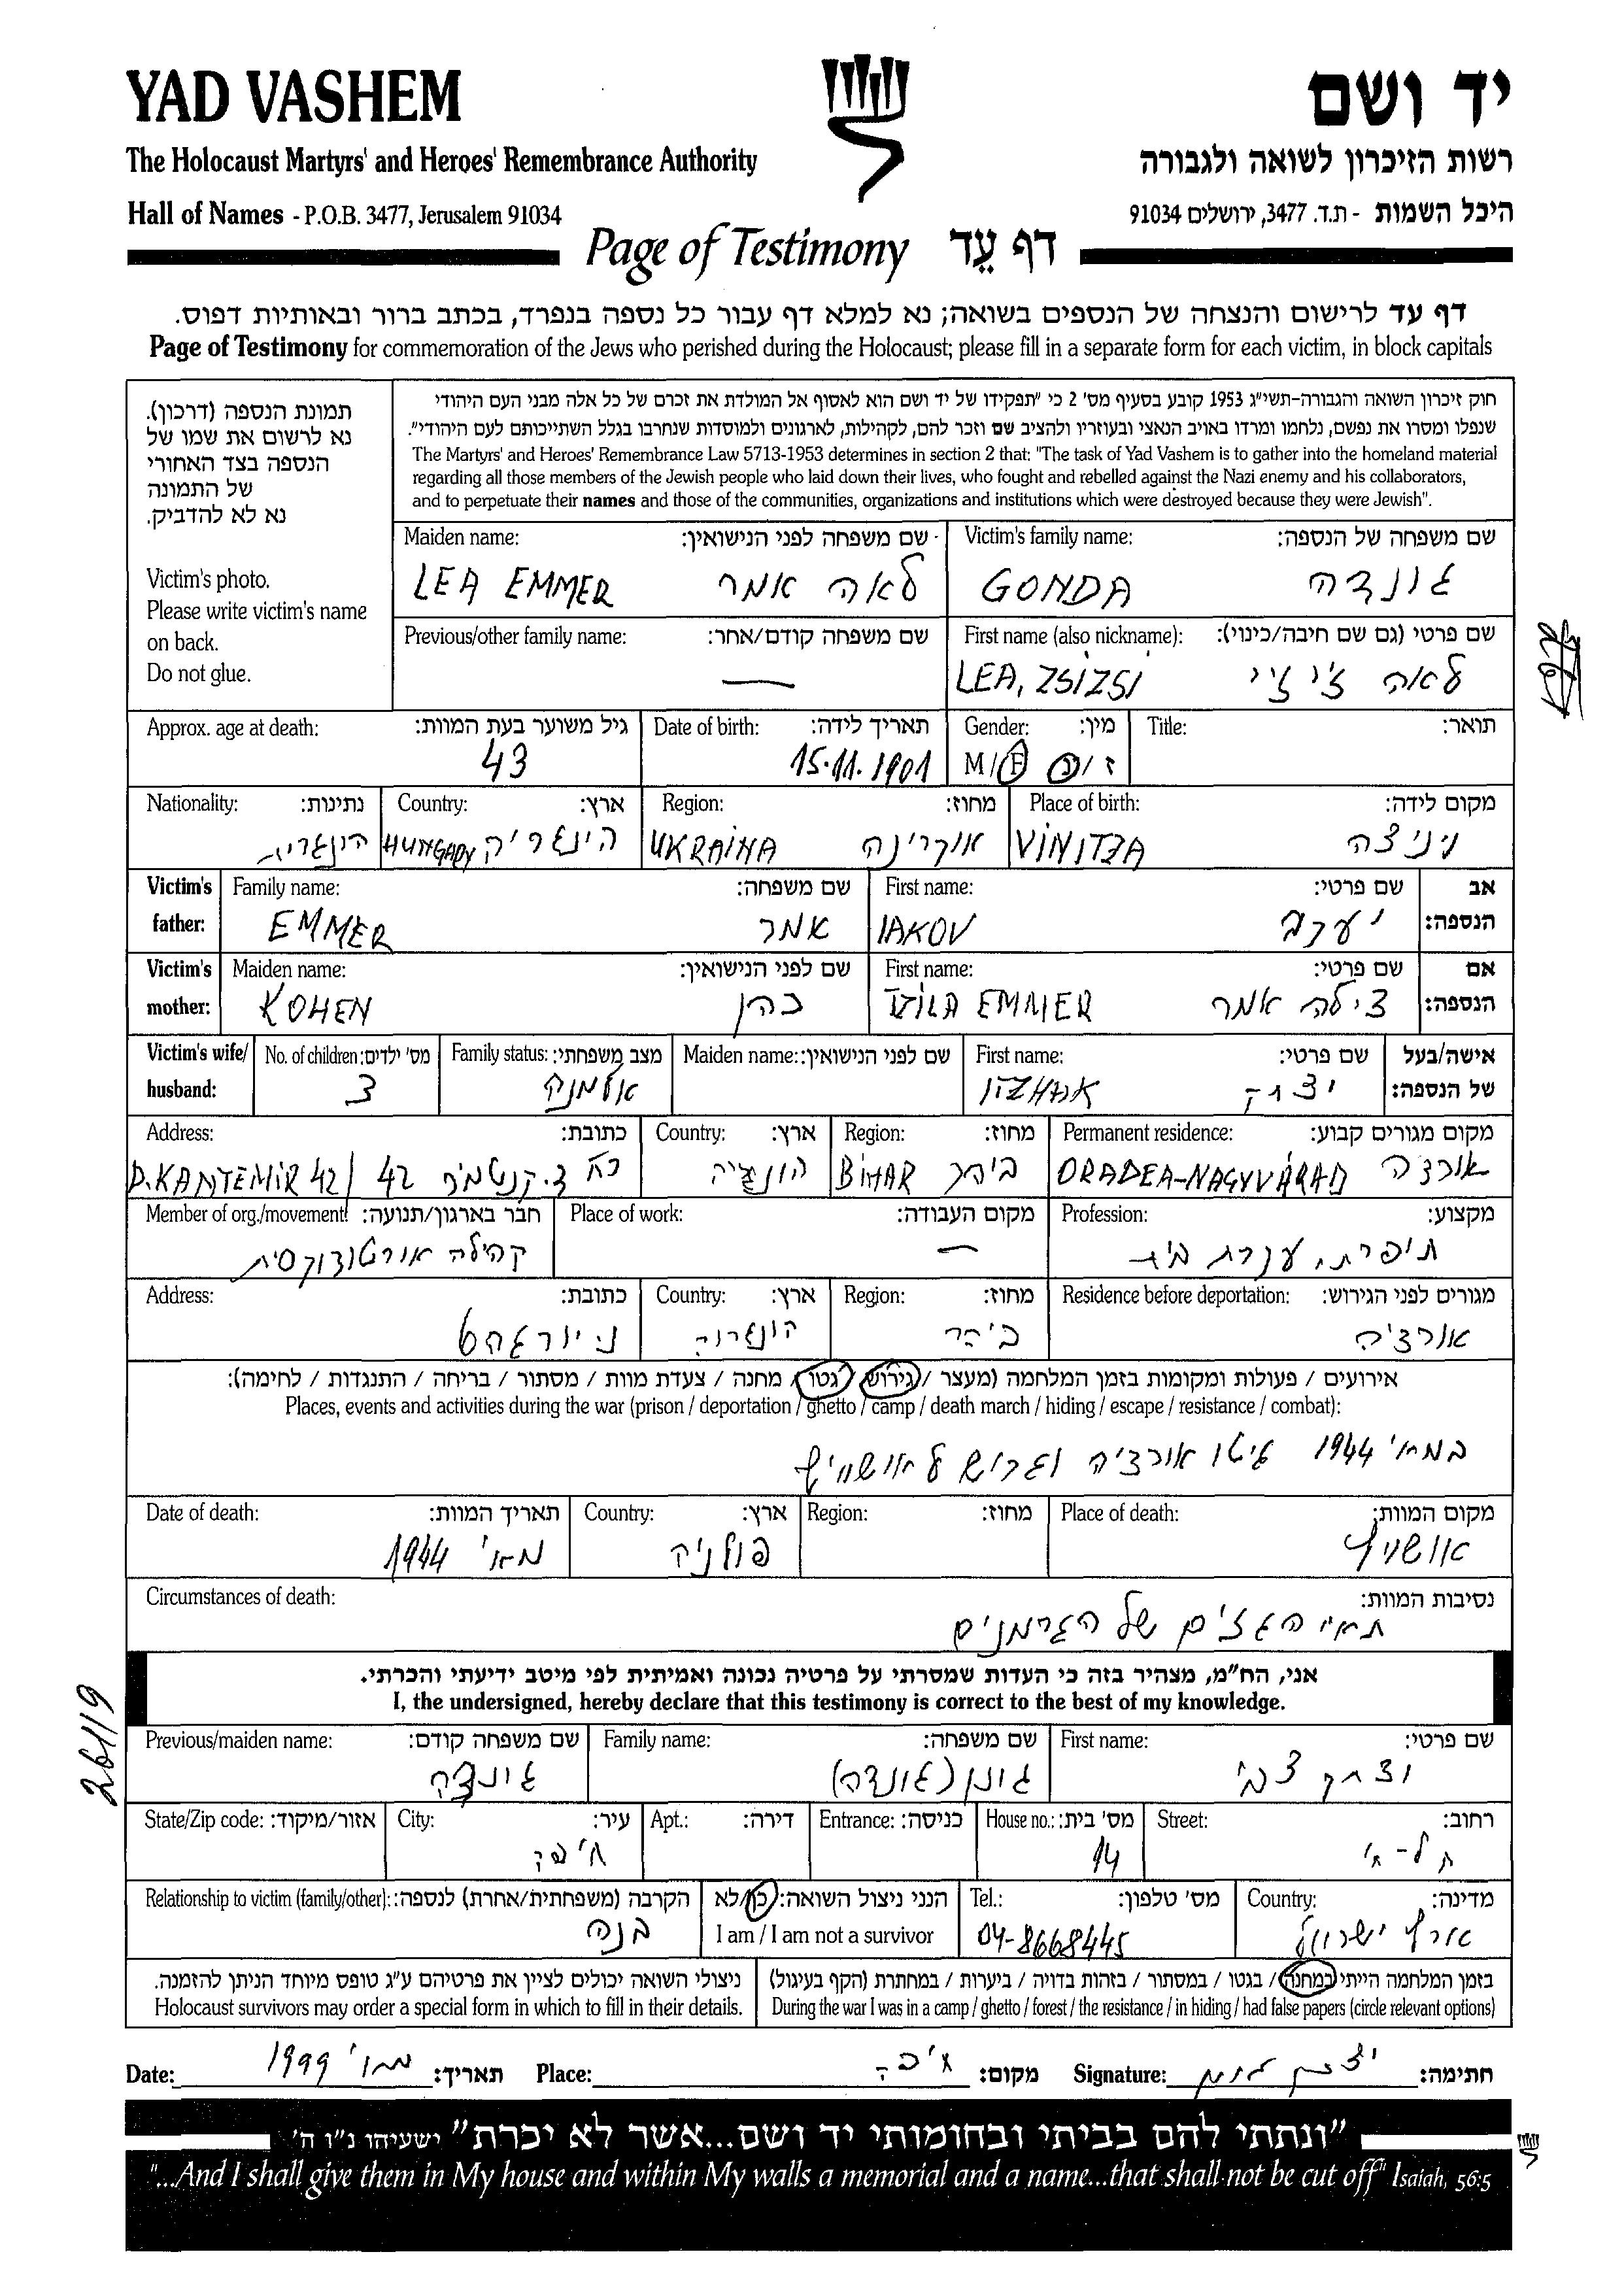 YAD VASHEM
יד ושם
The Holocaust Martyrs' and Heroes' Remembrance Authority
רשות הזיכרון לשואה ולגבורה
Hall of Names - P.O.B. 3477, Jerusalem 91034
היכל השמות - ת.ד. 3477, ירושלים 91034
Page of Testimony דף עֵד
דף עד לרישום והנצחה של הנספים בשואה; נא למלא דף עבור כל נספה בנפרד, בכתב ברור ובאותיות דפוס.
Page of Testimony for commemoration of the Jews who perished during the Holocaust; please fill in a separate form for each victim, in block capitals
תמונת הנספה (דרכון).
נא לרשום את שמו של
הנספה בצד האחורי
של התמונה
נא לא להדביק.
Victim's photo.
Please write victim's name
on back.
Do not glue.
חוק זיכרון השואה והגבורה-תשי"ג 1953 קובע בסעיף מס' 2 כי "תפקידו של יד ושם הוא לאסוף אל המולדת את זכרם של כל אלה מבני העם היהודי
שנפלו ומסרו את נפשם, נלחמו ומרדו באויב הנאצי ובעוזריו ולהציב שם וזכר להם, לקהילות, לארגונים ולמוסדות שנחרבו בגלל השתייכותם לעם היהודי".
The Martyrs' and Heroes' Remembrance Law 5713-1953 determines in section 2 that: "The task of Yad Vashem is to gather into the homeland material
regarding all those members of the Jewish people who laid down their lives, who fought and rebelled against the Nazi enemy and his collaborators,
and to perpetuate their names and those of the communities, organizations and institutions which were destroyed because they were Jewish".
Maiden name: שם משפחה לפני הנישואין:
LEA EMMER לאה אמר
Victim's family name: שם משפחה של הנספה:
GONDA גונדה
Previous/other family name: שם משפחה קודם/אחר:
—
First name (also nickname): שם פרטי (גם שם חיבה/כינוי):
LEA, ZSIZSI לאה ז'י ז'י
Approx. age at death: גיל משוער בעת המוות:
43
Date of birth: תאריך לידה:
15.11.1901
Gender: מין:
M/F ז/נ
Title: תואר:
Nationality: נתינות:
הונגרית
Country: ארץ:
HUNGARY הינגריה
Region: מחוז:
UKRAINA אוקרינה
Place of birth: מקום לידה:
VINITZA ויניצה
Victim's father: Family name: שם משפחה:
EMMER אמר
First name: שם פרטי: אב הנספה:
IAKOV יעקב
Victim's mother: Maiden name: שם לפני הנישואין:
KOHEN כהן
First name: שם פרטי: אם הנספה:
EMMER צילה אמר
Victim's wife/ husband: No. of children: מס' ילדים:
3
Family status: מצב משפחתי:
אלמנה
Maiden name: שם לפני הנישואין:
First name: שם פרטי: אישה/בעל של הנספה:
ITZHAK יצחק
Address: כתובת:
D. KANTEMIR 42 רח ד. קנטמיר 42
Country: ארץ:
הונגריה
Region: מחוז:
BIHAR ביהר
Permanent residence: מקום מגורים קבוע:
ORADEA-NAGYVÁRAD אורדה
Member of org./movement: חבר בארגון/תנועה:
קהילה אורטודוקסית
Place of work: מקום העבודה:
—
Profession: מקצוע:
תופרת, עקרת בית
Address: כתובת:
Country: ארץ:
הונגריה
Region: מחוז:
ביהר
Residence before deportation: מגורים לפני הגירוש:
אורדיה
אירועים / פעולות ומקומות בזמן המלחמה (מעצר / גירוש / גטו / מחנה / צעדת מוות / מסתור / בריחה / התנגדות / לחימה):
Places, events and activities during the war (prison / deportation / ghetto / camp / death march / hiding / escape / resistance / combat):
במאי 1944 גיטו אורדיה וגרוש לאושוויץ
Date of death: תאריך המוות:
מאי 1944
Country: ארץ:
פולניה
Region: מחוז:
Place of death: מקום המוות:
אושויץ
Circumstances of death: נסיבות המוות:
תאי הגזים של הגרמנים
אני, הח"מ, מצהיר בזה כי העדות שמסרתי על פרטיה נכונה ואמיתית לפי מיטב ידיעתי והכרתי.
I, the undersigned, hereby declare that this testimony is correct to the best of my knowledge.
26119
Previous/maiden name: שם משפחה קודם:
גונדה
Family name: שם משפחה:
גונן (גונדה)
First name: שם פרטי:
יצחק צבי
State/Zip code: אזור/מיקוד:
City: עיר:
חיפה
Apt.: דירה:
Entrance: כניסה:
House no.: מס' בית:
14
Street: רחוב:
תל-חי
Relationship to victim (family/other): הקרבה (משפחתית/אחרת) לנספה:
בנה
הנני ניצול השואה: כן/לא
I am / I am not a survivor
Tel.: מס' טלפון:
04-8668445
Country: מדינה:
ארץ ישראל
ניצולי השואה יכולים לציין את פרטיהם ע"ג טופס מיוחד הניתן להזמנה.
Holocaust survivors may order a special form in which to fill in their details.
בזמן המלחמה הייתי במחנה / בגטו / במסתור / בזהות בדויה / ביערות / במחתרת (הקף בעיגול)
During the war I was in a camp / ghetto / forest / the resistance / in hiding / had false papers (circle relevant options)
Date: מאי 1999 תאריך: Place: חיפה מקום: Signature: יצחק גונן חתימה:
"ונתתי להם בביתי ובחומותי יד ושם...אשר לא יכרת" ישעיהו נ"ו ה'
"...And I shall give them in My house and within My walls a memorial and a name...that shall not be cut off" Isaiah, 56:5